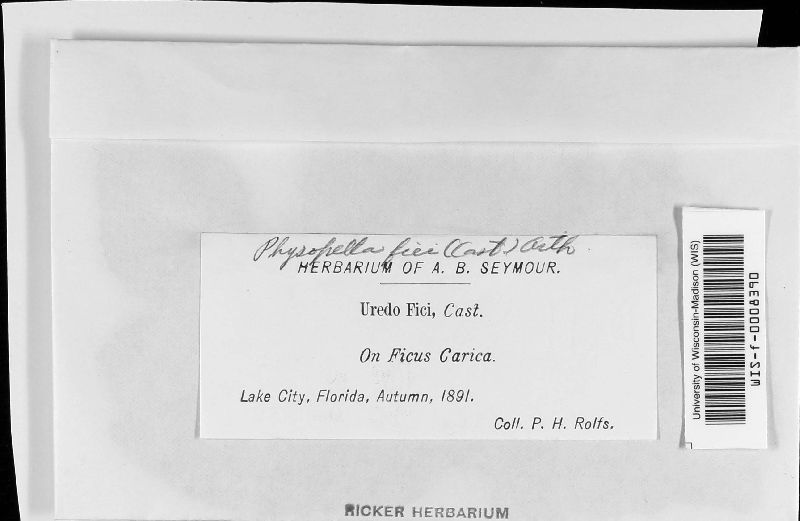 Physopella fici (Cast) Arth
HERBARIUM OF A. B. SEYMOUR.
Uredo Fici, Cast.
On Ficus Carica.
Lake City, Florida, Autumn, 1891.
Coll. P. H. Rolfs.
RICKER HERBARIUM
University of Wisconsin-Madison (WIS)
WIS-f-0008390